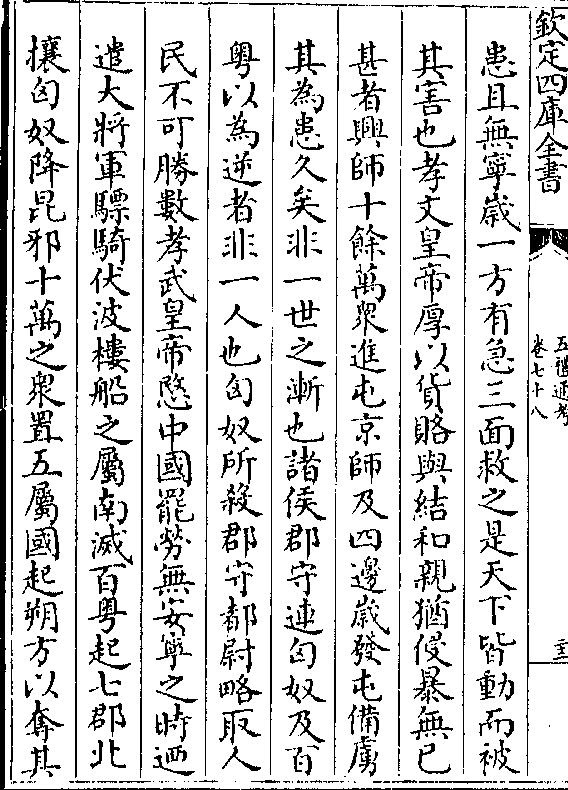 欽定四庫全書
五禮通考
卷七十八
患且無寧歳一方有急三面救之是天下皆動而被
其害也孝文皇帝厚以貨賂與結和親猶侵暴無已
甚者興師十餘萬衆進屯京師及四邊歳發屯備虜
其為患久矣非一世之漸也諸侯郡守連匈奴及百
粤以為逆者非一人也匈奴所殺郡守都尉略取人
民不可勝數孝武皇帝愍中國罷勞無安寧之時廼
遣大將軍驃騎伏波樓船之屬南滅百粤起七郡北
攘匈奴降昆邪十萬之衆置五屬國起朔方以奪其